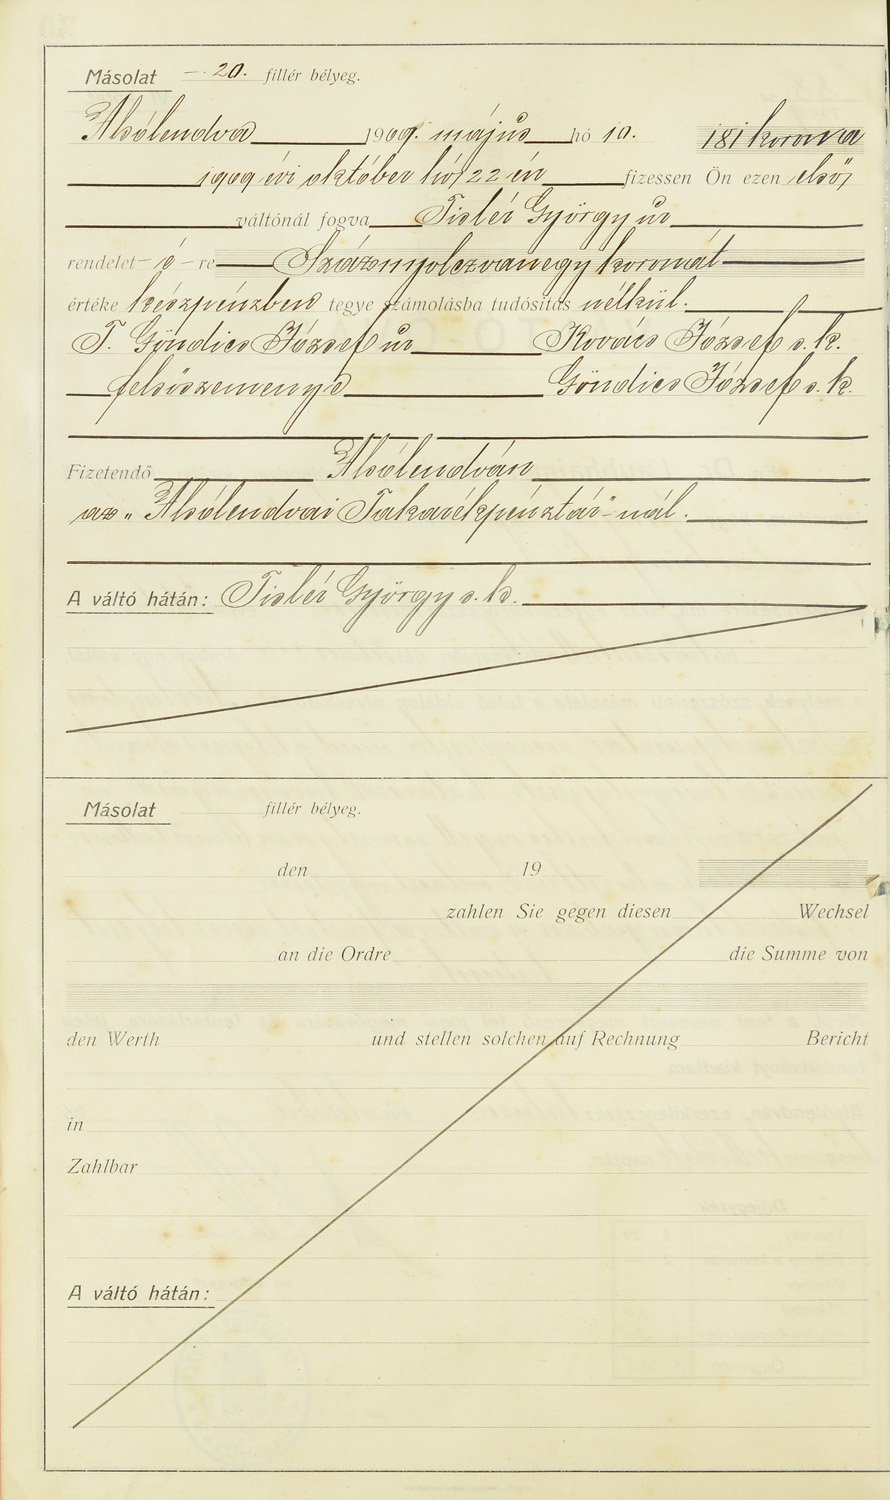 Másolat – 20. fillér bélyeg.
Alsólendva 1909. május hó 10. 181 korona
1909 évi október hó 22 én fizessen Ön ezen első
váltónál fogva Tislér György úr
rendelet- é -re Száznyolczvanegy koronát
értéke készpénzben tegye számolásba tudósítás nélkül.
T. Göndics József úr Kovács József s. k.
felsőszemenye Göndics József s. k.
Fizetendő Alsólendván
az „Alsólendvai Takarékpénztár"-nál.
A váltó hátán: Tislér György s. k.
Másolat fillér bélyeg.
den 19
zahlen Sie gegen diesen Wechsel
an die Ordre die Summe von
den Werth und stellen solchen auf Rechnung Bericht
in
Zahlbar
A váltó hátán: